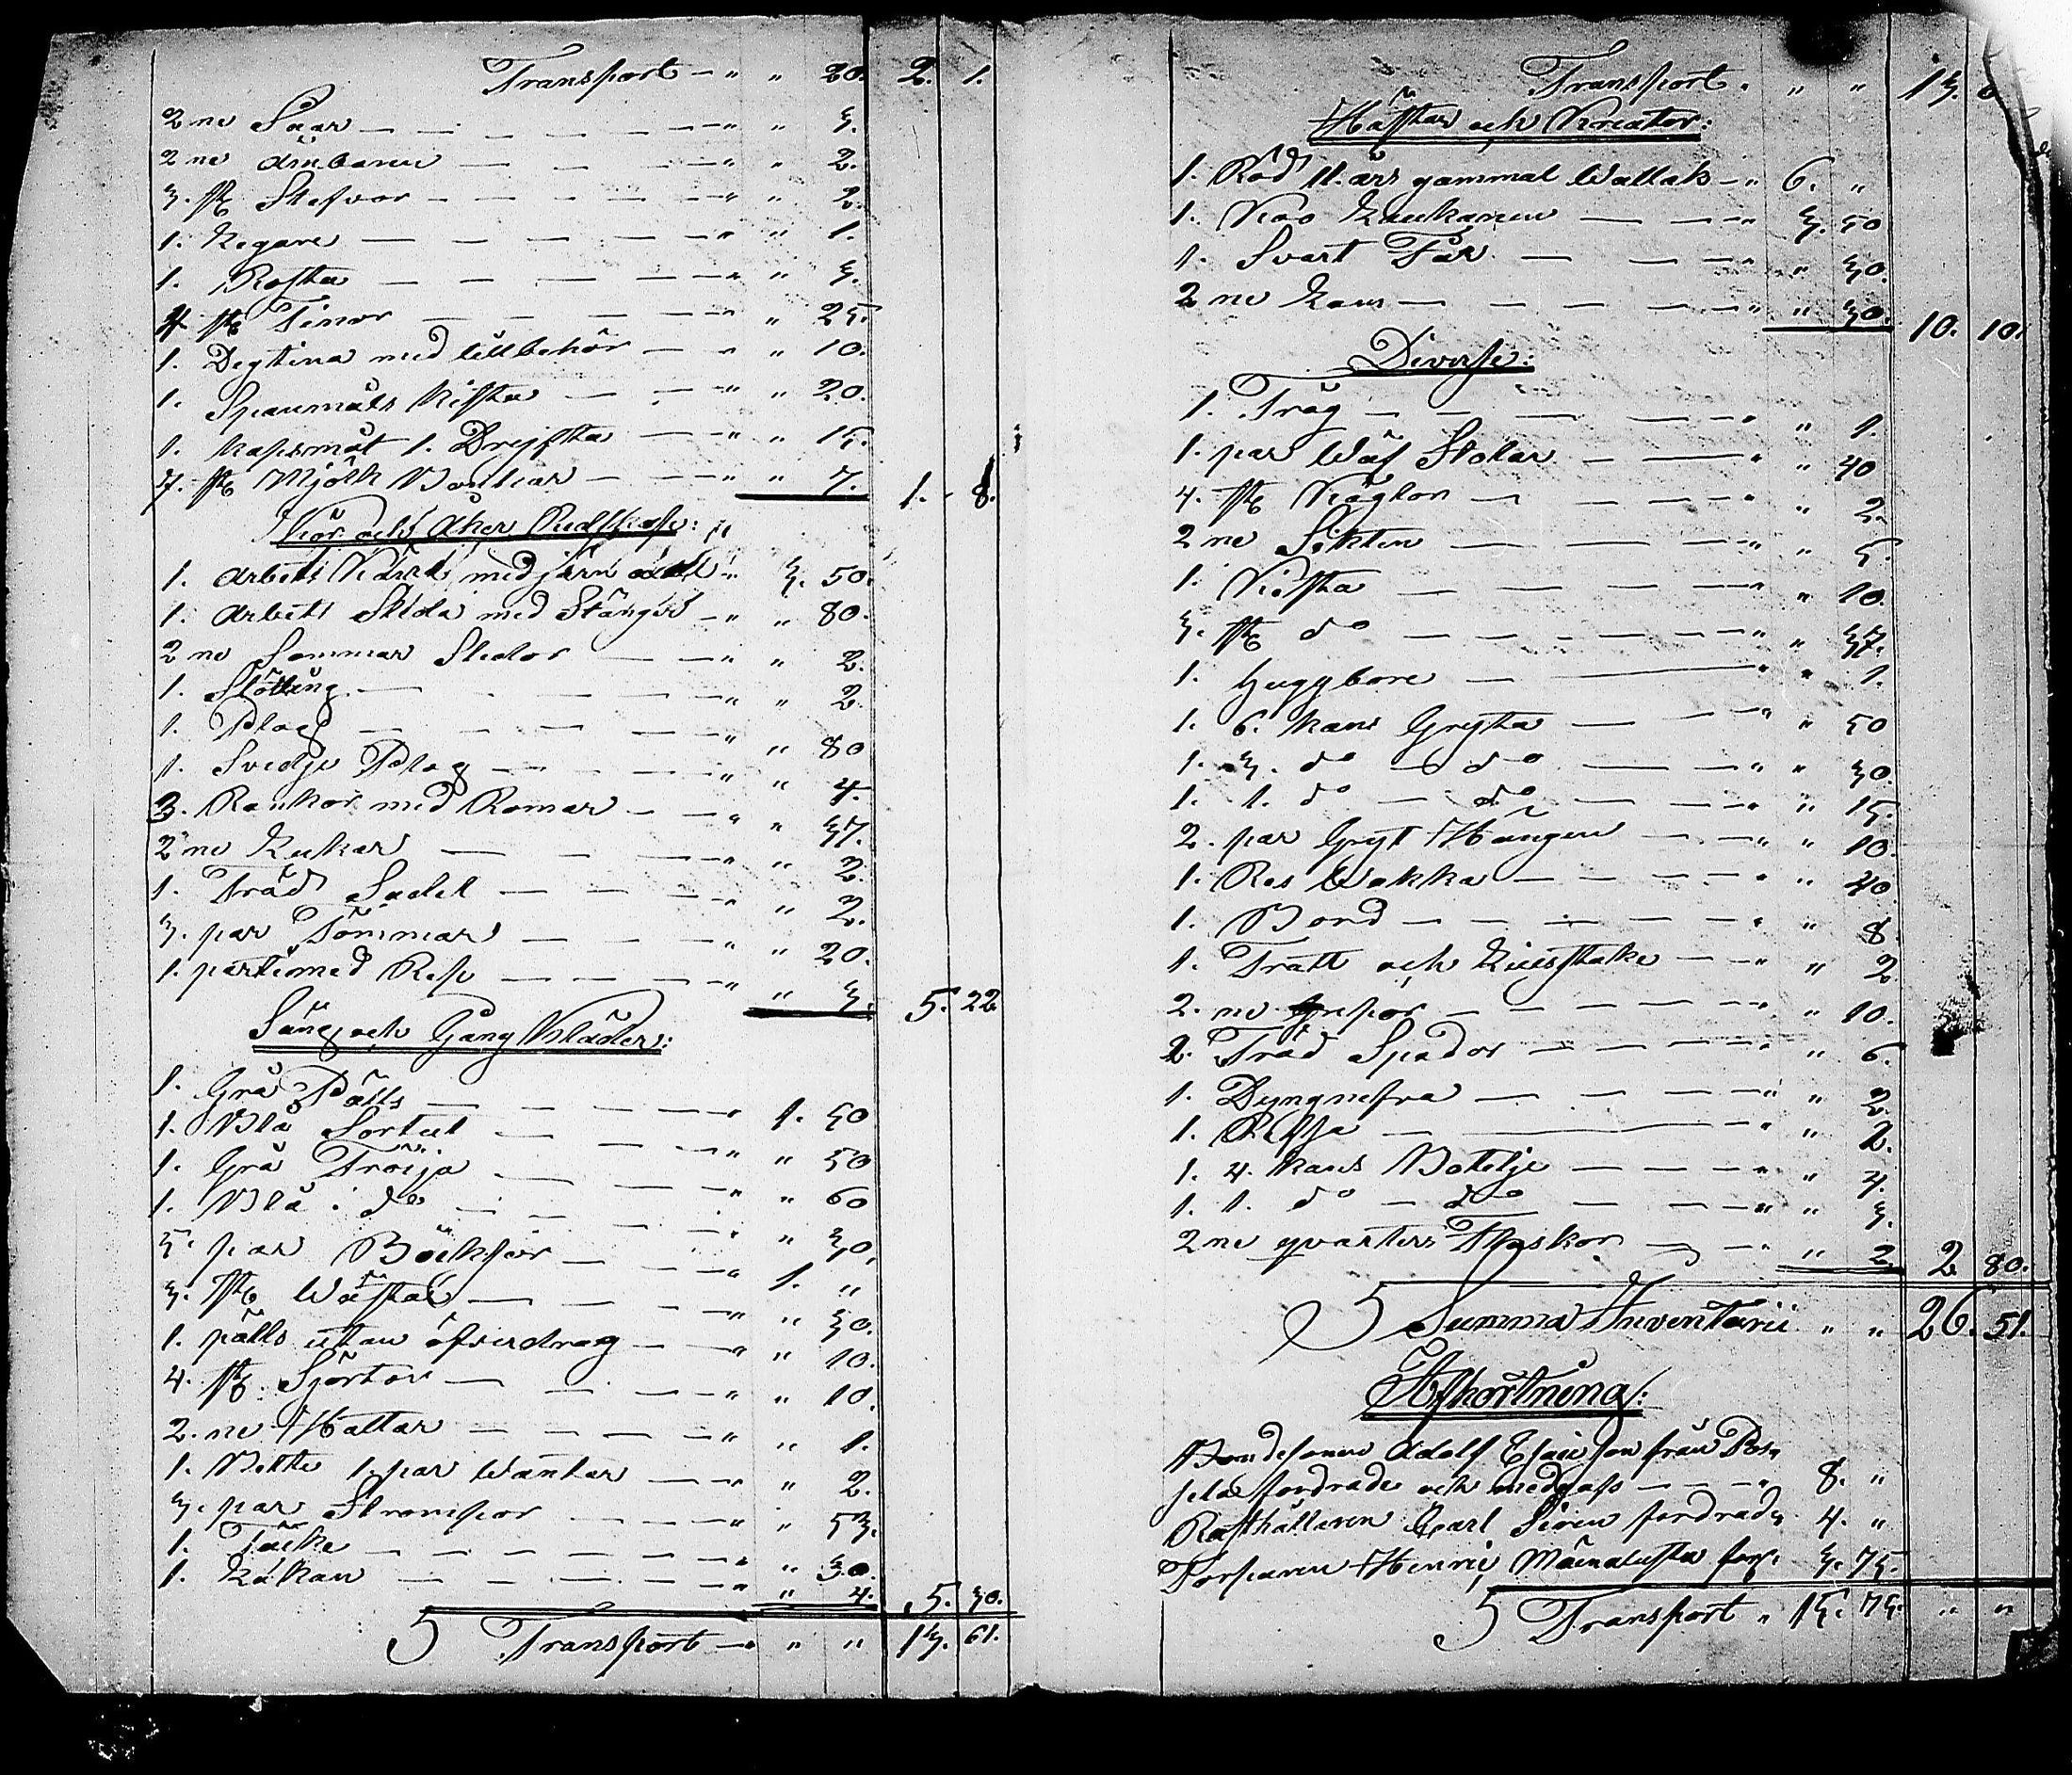 Transport — " " 20. 2. 1.
2 ne Såar — " " 3.
2 ne Ämbaren — " " 2.
3. st: Stefvor — " " 2.
1. Legare — " " 1.
1. Rosta — " " 3.
4 st: Tinor — " " 25.
1. Degtina med tillbehör — " " 10.
1. Spanmåls Kista — " " 20.
1. kapsmåt 1. Drejfta — " " 15.
7. st: Mjölk Bunkar — " " 7. 1. 8.
Kiör och Åker Redskap:
1. Arbets Kärra med järn axel " 3. 50.
1. Arbets Släda med Stänger — " " 80.
2 ne Sommar Slädor — " " 2.
1. Stötting — " " 2.
1. Plog — " " 80
1. Svedje Plog — " " 4.
3. Rankor med Romar — " " 37.
2 ne Luskar — " " 2.
1. Träd Sadel — " " 2.
3. par Tömmar — " " 20.
1. parti med Rep — " " 3. 5. 22
Säng och Gång Kläder:
1. Grå Pälts — " 1. 50
1. Blå Sortut — " " 50
1. Grå Tröija — " " 60
1. Blå do — " " 30.
5. par Böckser — " 1. "
3. st: Wästar — " " 30.
1. pälts uttan öfverdrag — " " 10.
4. st: Sjortor — " " 10.
2. ne Hattar — " " 1.
1. Bälte 1. par Wantar — " " 2.
3. par Strompor — " " 53.
1. Täcke — " " 30.
1. Lakan — " " 4. 5. 30.
S Transport — " " 13. 61.
Transport. " " 13. 6
Hästar och Kreatur:
1. Röd 11. års gammal Wallak — " 6. "
1. Koo Laukanen — " 3. 50
1. Svart Får — " " 30.
2 ne Lam — " " 30. 10. 10.
Diverse:
1. Tråg — " " 1.
1. par Wäf Stolar — " " 40
4. st: Käglor — " " 2.
2 ne Sikten — " " 5.
1. Kista — " " 10.
3. st: do — " " 37.
1. Huggbore — " " 1.
1. 6. kans Gryta — " " 50
1. 3. do — do — " " 30.
1. 1. do — do — " " 15.
2. par Gryt Hängen — " " 10.
1. Res Wakka — " " 40
1. Bord — " " 8
1. Tratt och Liusstake — " " 2
2. ne Grepor — " " 10.
2. Träd Spador — " " 6.
1. Dyngnefra — " " 2.
1. Refsa — " " 2.
1. 4. kans Botelje — " " 4.
1. 1. do — do — " " 3.
2 ne qvarters Flaskor — " " 2 2 80.
S Summa Inventarii " " 26. 51.
Afkortning:
Bondesonen Adolf Esaiesson från Pos,
sela fordrade och medgafs — " 8. "
Rusthållaren Carl Siren fordrade 4. "
Torparen Henric Mäenalusta ford: 3. 75.
S Transport " 15. 75. " "